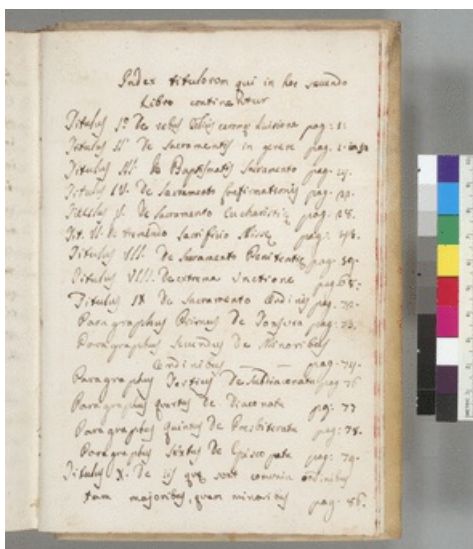 Index titulorum qui in hoc secundo
Libro continentur
Titulus I.º De rebus earumq divisione pag: 1:
Titulus II.º De Sacramentis in genere pag.
Titulus III. De Baptismatis Sacramento pag.
Titulus IV. De Sacramento Confirmationis pag.
Titulus V. De Sacramento Eucharistiæ pag.
Tit. VI. De tremendo Sacrificio Missæ pag:
Titulus VII. De Sacramento Penitentiæ pag.
Titulus VIII. De extrema Unctione pag
Titulus IX De Sacramento Ordinis pag.
Paragraphus Primus De Tonsura pag: 73.
Paragraphus Secundus De Minoribus
Ordinibus pag. 74.
Paragraphus Tertius De Subdiaconatu pag 76
Paragraphus quartus De Diaconatu pag: 77
Paragraphus quintus De Presbiteratu pag: 78.
Paragraphus Sextus De Episcopatu pag: 79.
Titulus X. De iis quæ sunt comunia ordinibus
tam majoribus, quam minoribus pag: 86.